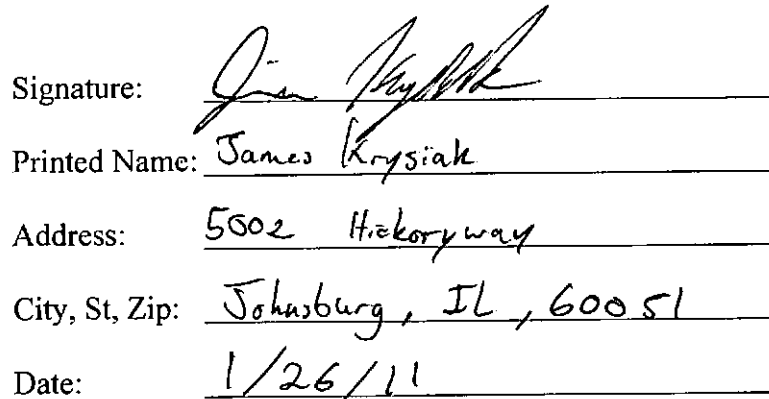 Signature: Jim Krysiak
Printed Name: James Krysiak
Address: 5002 Hickoryway
City, St, Zip: Johnsburg, IL, 60051
Date: 1/26/11